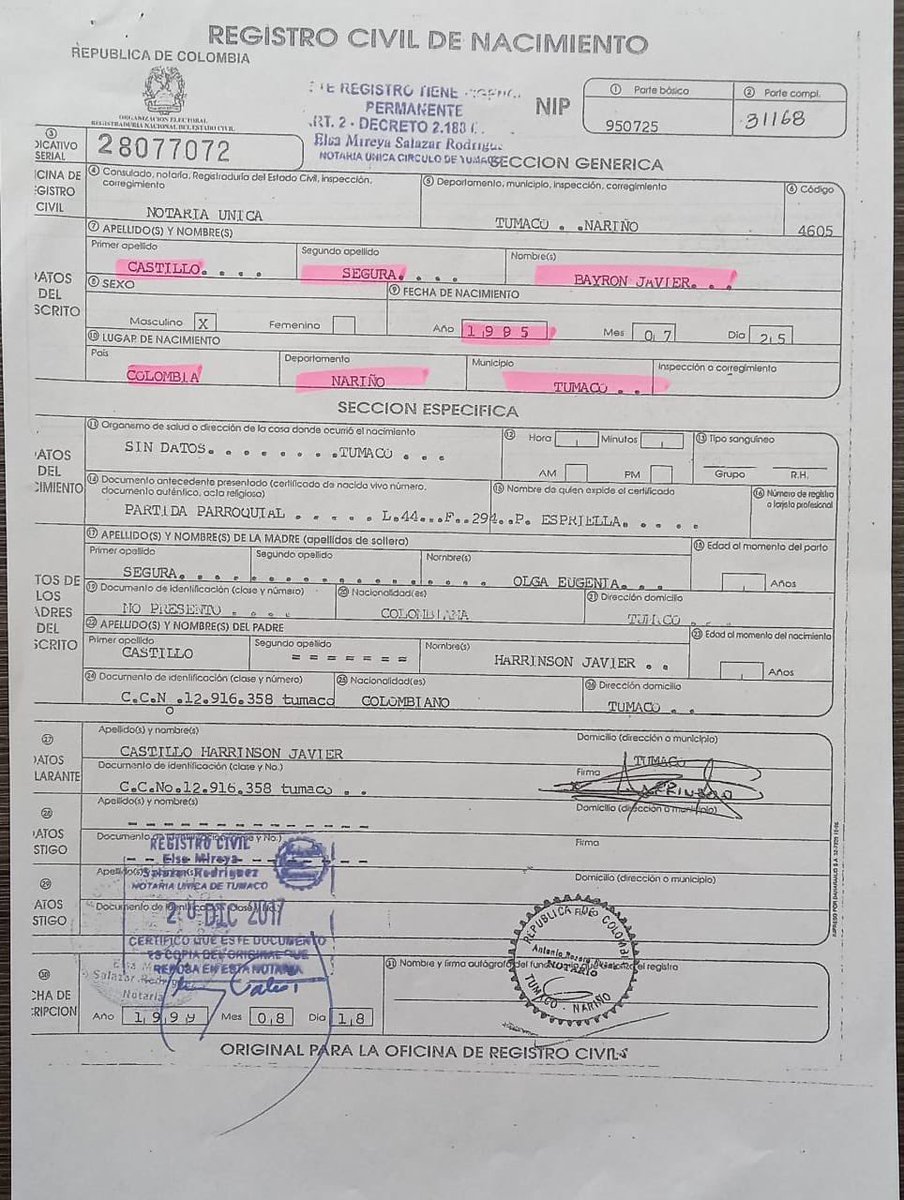 REGISTRO CIVIL DE NACIMIENTO
REPUBLICA DE COLOMBIA
ORGANIZACION ELECTORAL
REGISTRADURIA NACIONAL DEL ESTADO CIVIL
TE REGISTRO TIENE
PERMANENTE
RT. 2 - DECRETO 2.188
Elsa Mireya Salazar Rodrigu
NOTARIA UNICA CIRCULO DE TUMAC
NIP
① Parte básica
② Parte compl.
950725
31168
③
DICATIVO
SERIAL
28077072
SECCION GENERICA
CINA DE
GISTRO
CIVIL
④ Consulado, notaría, Registraduría del Estado Civil, inspección,
corregimiento
NOTARIA UNICA
⑤ Departamento, municipio, inspección, corregimiento
TUMACO . .NARIÑO
⑥ Código
4605
⑦ APELLIDO(S) Y NOMBRE(S)
ATOS
DEL
SCRITO
Primer apellido
Segundo apellido
Nombre(s)
CASTILLO. . . .
SEGURA. . . .
BAYRON JAVIER. . .
⑧ SEXO
⑨ FECHA DE NACIMIENTO
Masculino X
Femenino
Año 1995
Mes 07
Día 25
⑩ LUGAR DE NACIMIENTO
País
Departamento
Municipio
Inspección o corregimiento
COLOMBIA
NARIÑO
TUMACO . .
SECCION ESPECIFICA
ATOS
DEL
CIMIENTO
⑪ Organismo de salud o dirección de la casa donde ocurrió el nacimiento
SIN DATOS. . . . . . . .TUMACO . . .
⑫ Hora
Minutos
AM
PM
⑬ Tipo sanguíneo
Grupo
R.H.
⑭ Documento antecedente presentado (certificado de nacido vivo número,
documento auténtico, acta religiosa)
⑮ Nombre de quien expide el certificado
⑯ Número de registro
o tarjeta profesional
PARTIDA PARROQUIAL . . . . . L.44...F..294..P. ESPRIELLA. . . . .
TOS DE
LOS
ADRES
DEL
SCRITO
⑰ APELLIDO(S) Y NOMBRE(S) DE LA MADRE (apellidos de soltera)
⑱ Edad al momento del parto
Primer apellido
Segundo apellido
Nombre(s)
SEGURA. . . . . . . . . . . . . . . . . . OLGA EUGENIA. . .
Años
⑲ Documento de identificación (clase y número)
⑳ Nacionalidad(es)
㉑ Dirección domicilio
NO PRESENTO . . . .
COLOMBIANA
㉒ APELLIDO(S) Y NOMBRE(S) DEL PADRE
㉓ Edad al momento del nacimiento
Primer apellido
Segundo apellido
Nombre(s)
CASTILLO
= = = = = = =
HARRINSON JAVIER . .
Años
㉔ Documento de identificación (clase y número)
㉕ Nacionalidad(es)
㉖ Dirección domicilio
C.C.N .12.916.358 tumaco
o
COLOMBIANO
TUMACO . .
㉗
ATOS
LARANTE
Apellido(s) y nombre(s)
Domicilio (dirección o municipio)
CASTILLO HARRINSON JAVIER
TUMACO
Documento de identificación (clase y No.)
Firma
C.C.No.12.916.358 tumaco . .
㉘
ATOS
STIGO
Apellido(s) y nombre(s)
Domicilio (dirección o municipio)
Documento de identificación (clase y No.)
Firma
㉙
ATOS
STIGO
Apellido(s) y nombre(s)
Domicilio (dirección o municipio)
Documento de identificación (clase y No.)
Firma
REGISTRO CIVIL
Elsa Mireya
Salazar Rodriguez
NOTARIA UNICA DE TUMACO
20 DIC 2017
CERTIFICO QUE ESTE DOCUMENTO
ES COPIA DEL ORIGINAL QUE
REPOSA EN ESTA NOTARIA
Salazar
Notaria
REPUBLICA DE COLOMBIA
NOTARIO
TUMACO - NARIÑO
㉚
CHA DE
CRIPCION
㉛ Nombre y firma autógrafa del funcionario que realiza el registro
Año 1999
Mes 08
Día 18
ORIGINAL PARA LA OFICINA DE REGISTRO CIVIL